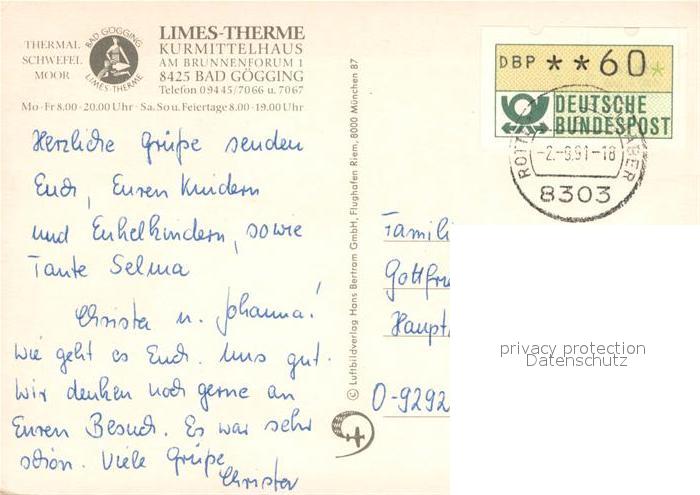 THERMAL
SCHWEFEL
MOOR
BAD GÖGGING
LIMES-THERME
LIMES-THERME
KURMITTELHAUS
AM BRUNNENFORUM 1
8425 BAD GÖGGING
Telefon 09445/7066 u. 7067
Mo-Fr 8.00-20.00 Uhr · Sa. So u. Feiertage 8.00-19.00 Uhr
Herzliche Grüße senden
Euch, Euren Kindern
und Enkelkindern, sowie
Tante Selma
Christa u. Johanna!
Wie geht es Euch. Uns gut.
Wir denken noch gerne an
Euren Besuch. Es war sehr
schön. Viele Grüße
Christa
© Luftbildverlag Hans Bertram GmbH, Flughafen Riem, 8000 München 87
DBP **60*
DEUTSCHE
BUNDESPOST
-2.-9.91-18
8303
Famili
Gottfri
Haupt
O-9292
privacy protection
Datenschutz